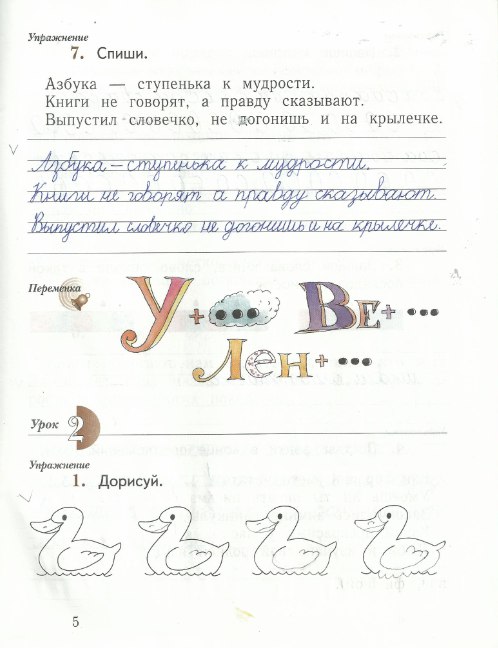 Упражнение
7. Спиши.
Азбука — ступенька к мудрости.
Книги не говорят, а правду сказывают.
Выпустил словечко, не догонишь и на крылечке.
Азбука – ступинька к мудрости.
Книги не говорят а правду сказывают.
Выпустил словечко не догонишь и на крылечке.
Переменка
У + ••• Ве + •••
Лен + •••
Урок 2
Упражнение
1. Дорисуй.
5